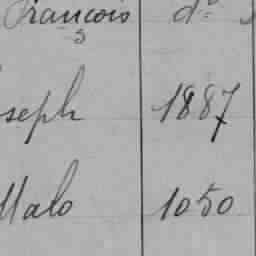 François do
seph 1887
Malo 1050